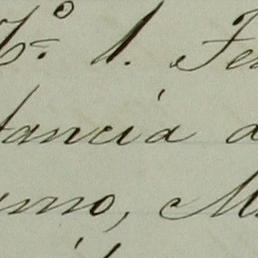 N.º 1. Fe
tancia a
umo, M